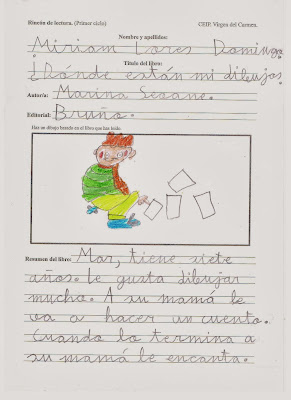 Rincón de lectura. (Primer ciclo) CEIP. Virgen del Carmen.
Nombre y apellidos:
Miriam Lores Dominga.
Título del libro:
¿Dónde están mi dibujos?
Autor/a: Marina Seoane.
Editorial: Bruño.
Haz un dibujo basado en el libro que has leído.
Resumen del libro: Mar, tiene siete
años. Le gusta dibujar
mucho. A su mamá le
va a hacer un cuento.
Cuando lo termina a
su mamá le encanta.